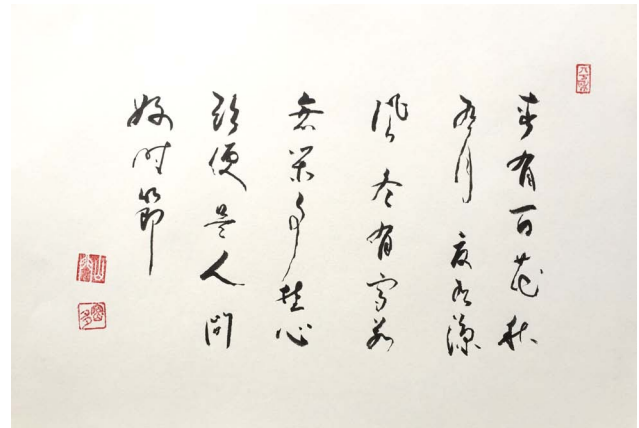 春有百花秋
有月夏有涼
風冬有雪若
無閑事挂心
頭便是人間
好時節